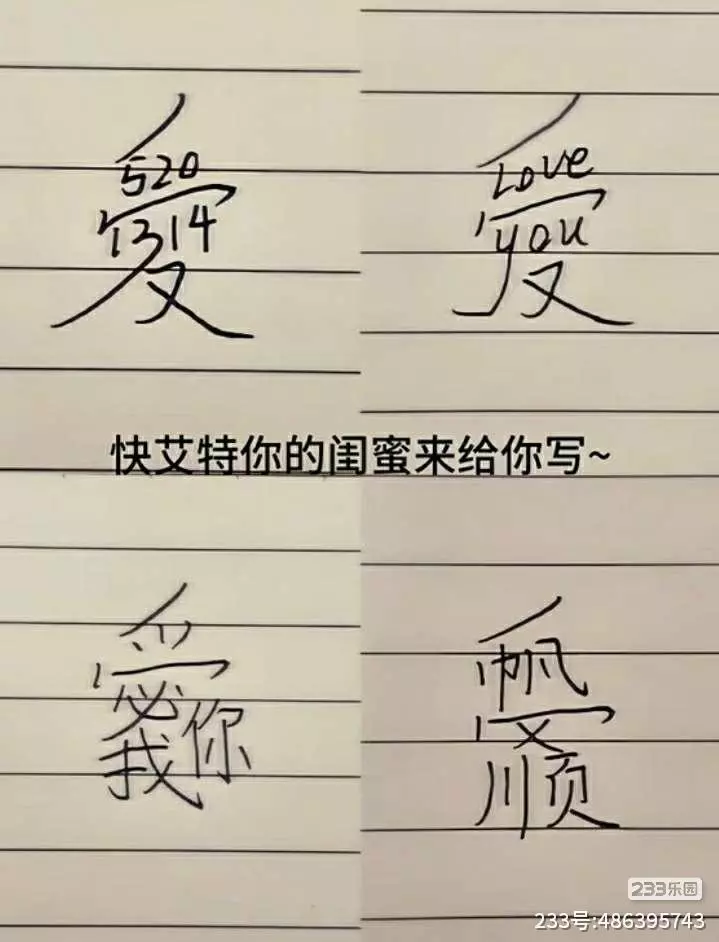 520
1314
Love
you
快艾特你的闺蜜来给你写~
我你
帆
顺
233乐园
233号:486395743